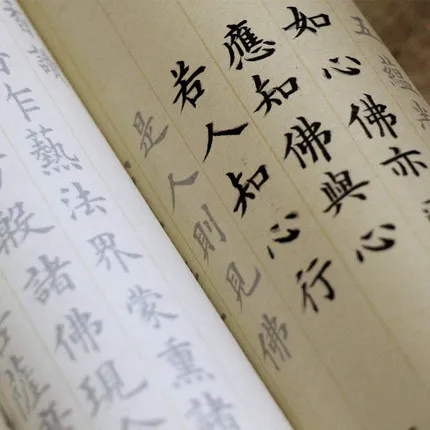 五蘊
如心佛亦
應知佛與心
若人知心行
是人則見佛
讚
乍爇法界蒙熏諸
諸佛現
薩